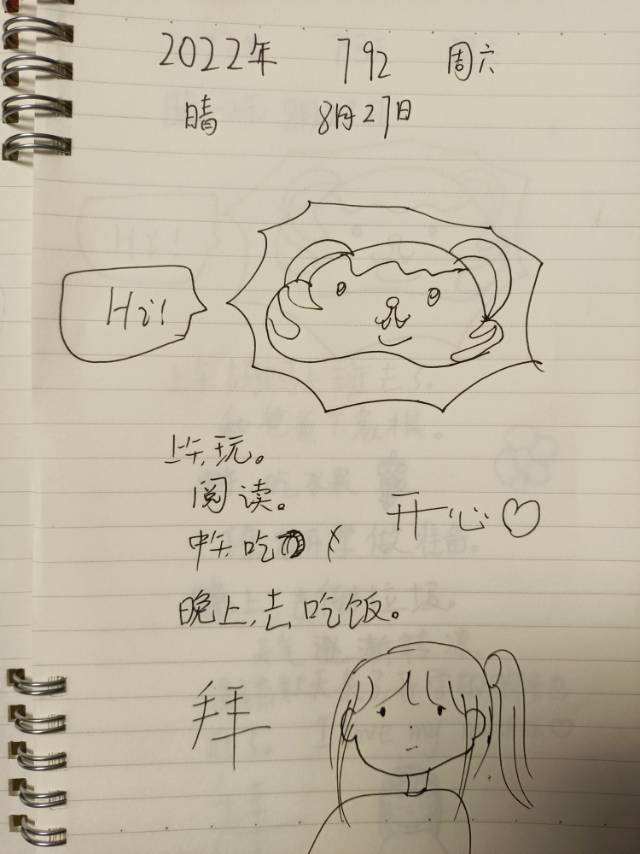 2022年 792 周六
晴 8月27日
Hi!
上午,玩。
阅读。
开心♡
中午吃
晚上,去吃饭。
拜